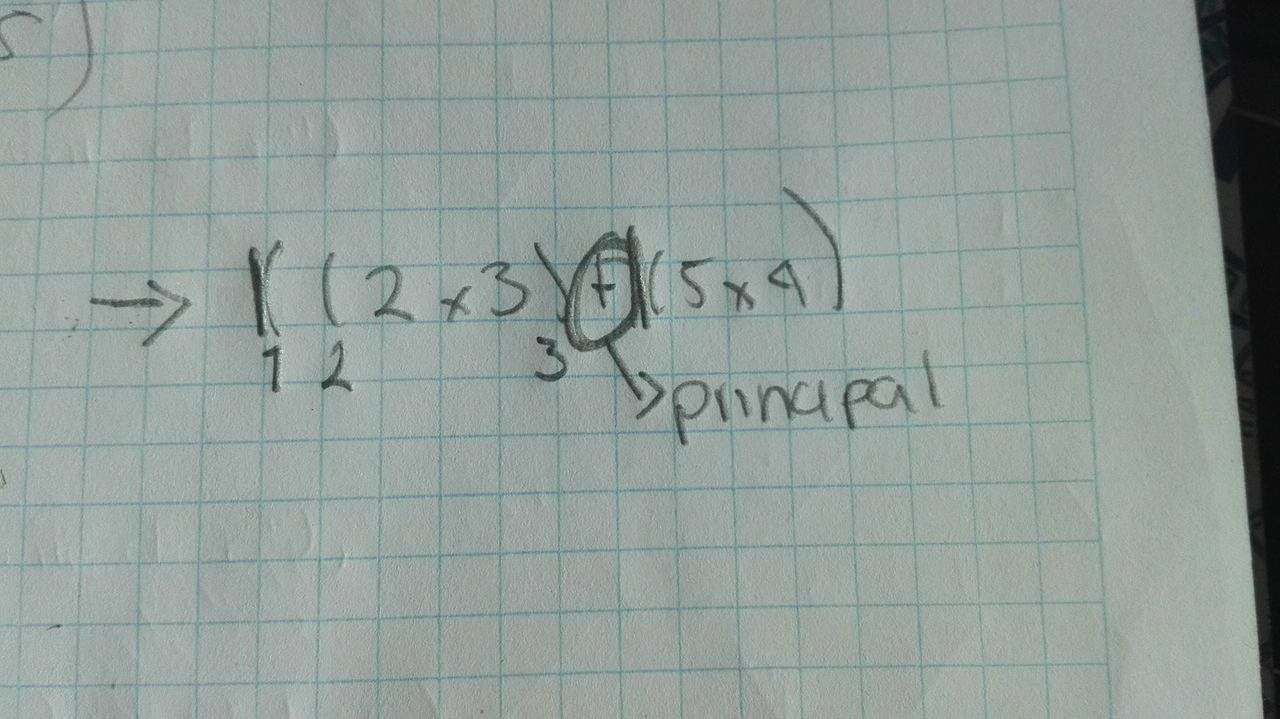 5)
→ ( (2 x 3) + (5 x 4)
1 2 3
principal